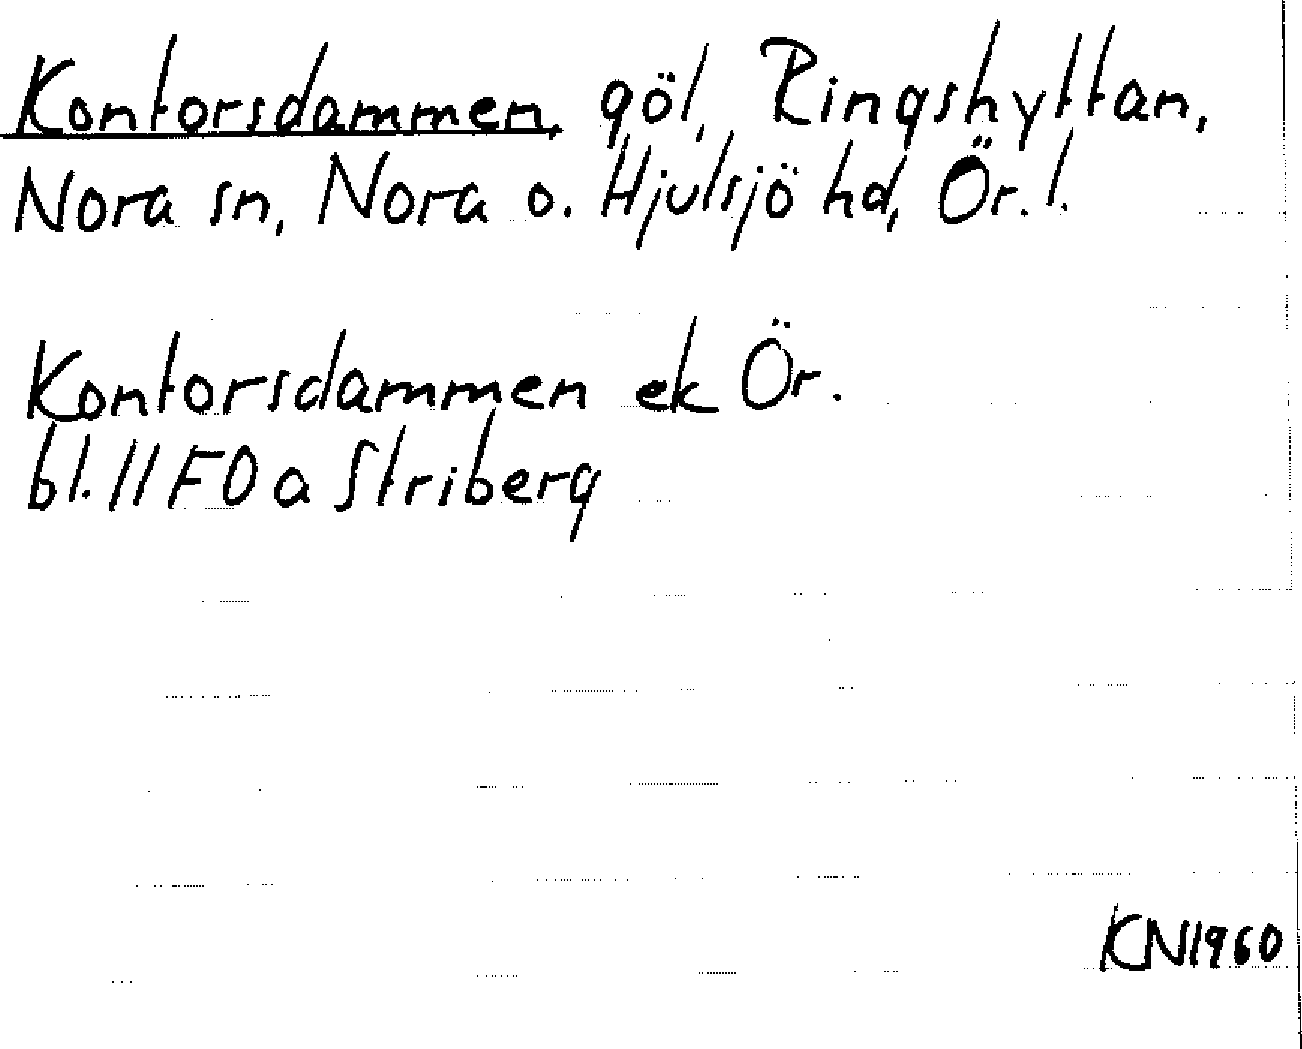 Kontorsdammen, göl, Ringshyttan,
Nora sn, Nora o. Hjulsjö hd, Ör. l.
Kontorsdammen ek Ör.
bl. 11 F 0 a Striberg
KN 1960